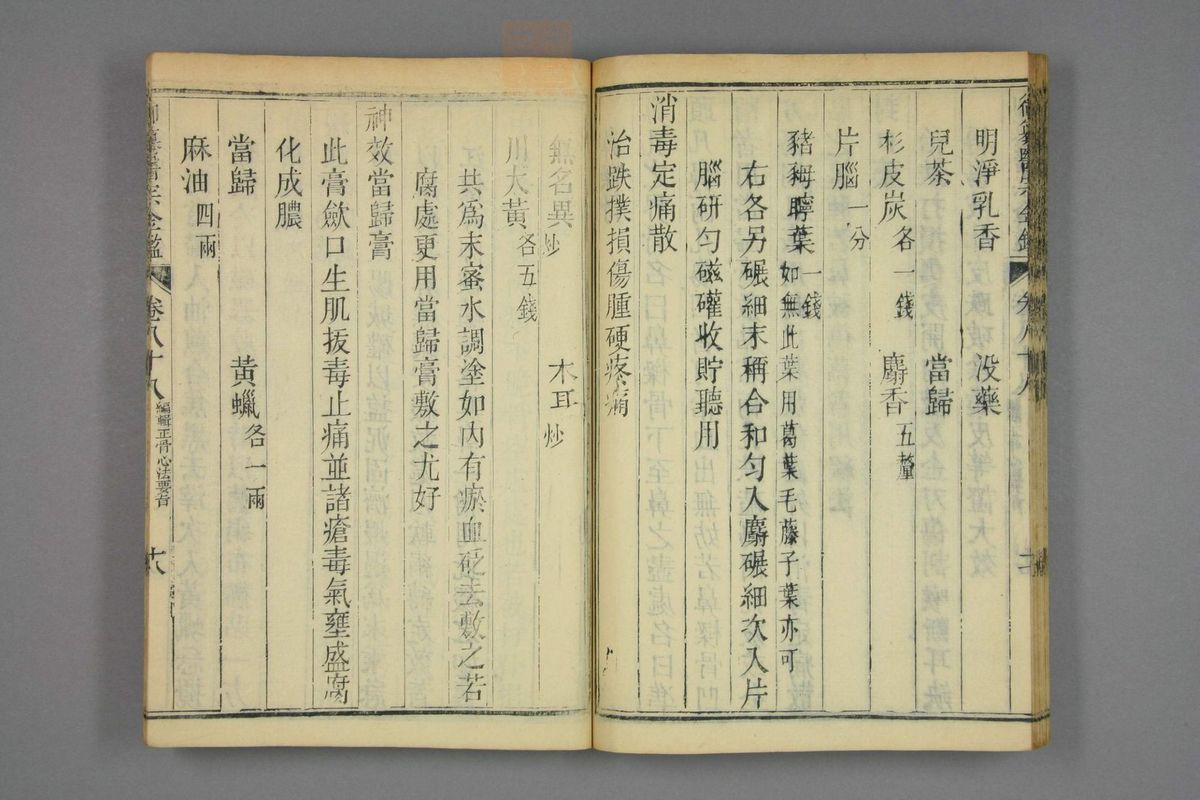 明淨乳香　没藥
兒茶　當歸
杉皮炭各一錢　麝香五釐
片腦一分
豬䓀聤葉一錢如無此葉用葛葉毛藤子葉亦可
右各另碾細末稱合和匀入麝碾細次入片
腦研匀磁礶收貯聽用
消毒定痛散
治跌撲損傷腫硬疼痛
無名異炒　木耳炒
川大黃各五錢
共爲末蜜水調塗如内有瘀血砭去敷之若
腐處更用當歸膏敷之尤好
神效當歸膏
此膏斂口生肌拔毒止痛並諸瘡毒氣壅盛腐
化成膿
當歸　黃蠟各一兩
麻油四兩
御纂醫宗金鑑　卷八十八　編輯正骨心法要旨